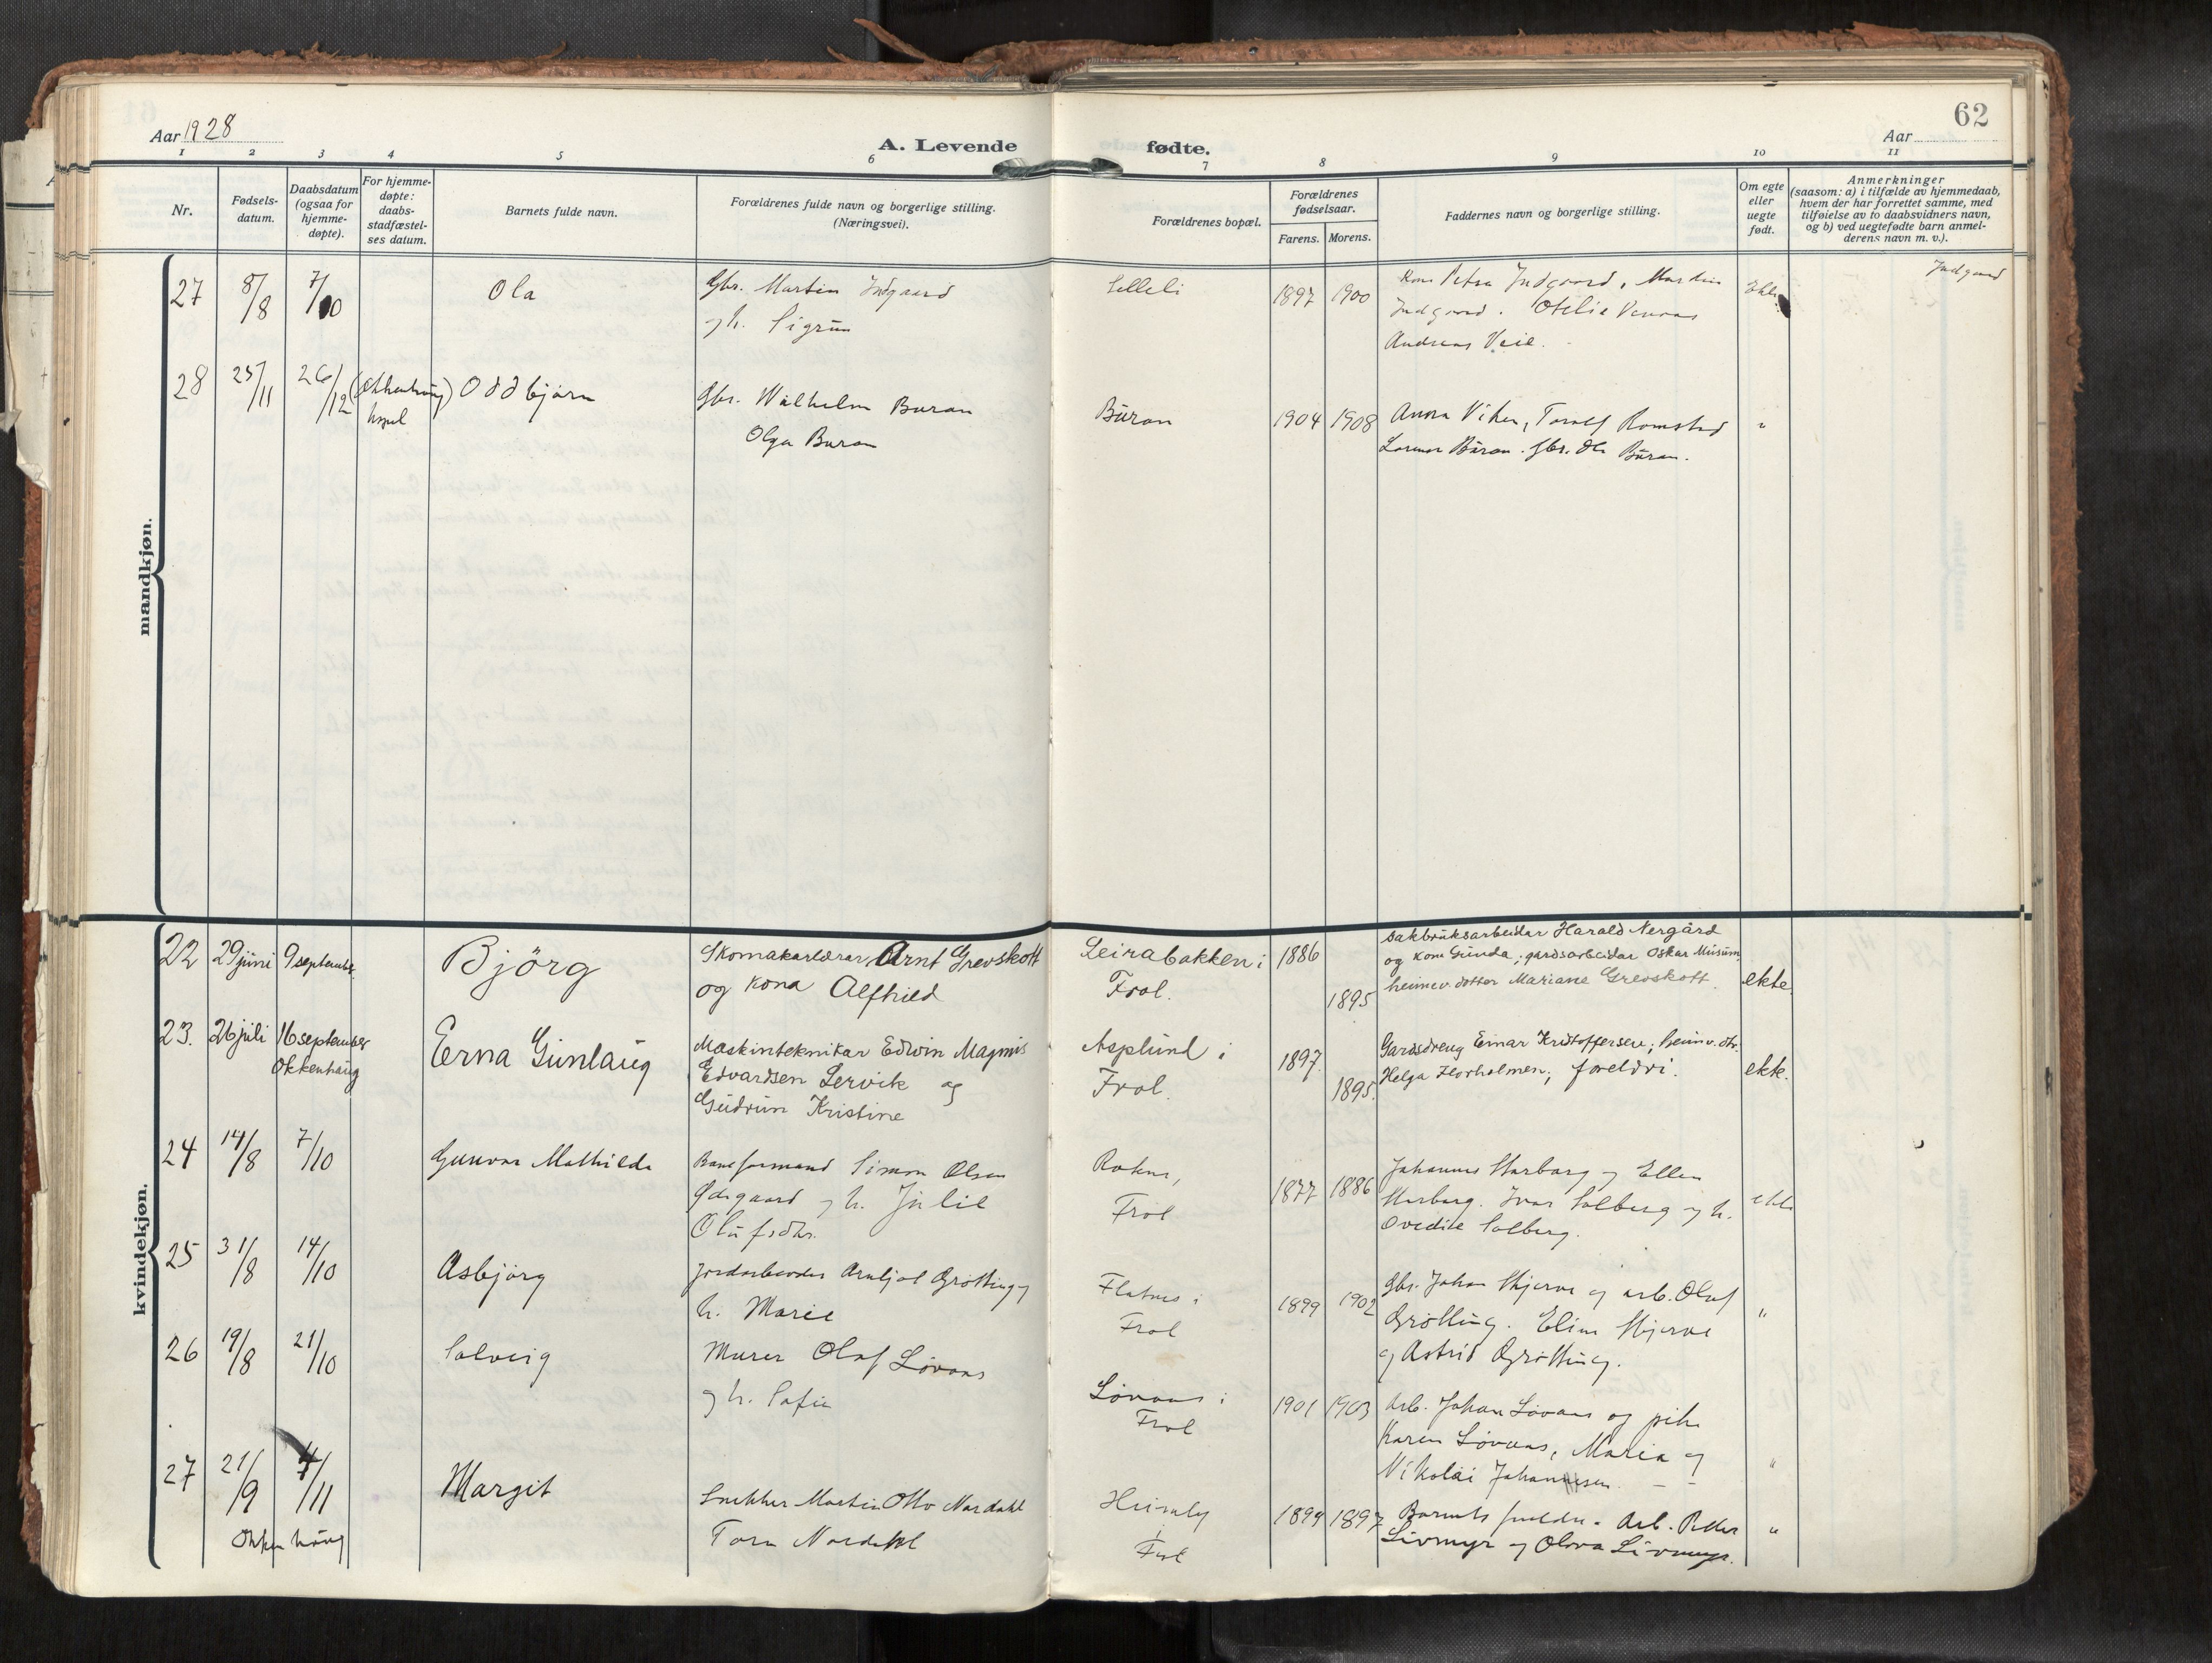 62
Aar 1928
A. Levende fødte.
Aar
1 2 3 4 5 6 7 8 9 10 11
Nr.
Fødsels-
datum.
Daabsdatum
(ogsaa for
hjemme-
døpte).
For hjemme-
døpte:
daabs-
stadfæstel-
ses datum.
Barnets fulde navn.
Forældrenes fulde navn og borgerlige stilling.
(Næringsvei).
Forældrenes bopæl.
Forældrenes
fødselsaar.
Farens. Morens.
Faddernes navn og borgerlige stilling.
Om egte
eller
uegte
født.
Anmerkninger
(saasom: a) i tilfælde av hjemmedaab,
hvem der har forrettet samme, med
tilføielse av to daabsvidners navn,
og b) ved uegtefødte barn anmel-
derens navn m. v.).
mandkjøn.
27 8/8 7/10 Ola Gbr. Martin Indgaard 1897 1900 Kone Petra Indgaard, Martin Ekte Indgaard
og h. Sigrun Indgaard. Otelie
Andreas Veie.
28 25/11 26/12 (Okkenhaug Oddbjørn Gbr. Wilhelm Buran Buran 1904 1908 Anna Viken, Toralf Romstad "
kapel) Olga Buran Buran. gbr. Ole Buran.
kvindekjøn.
22 29 juni 9 septembr. Bjørg Skomakarlærar Arnt Grevskott Leirabakken i 1886 sakbruksarbeidar Harald Nergård
og kona Alfhild Frol. 1895 og kone Gunda; gardsarbeidar Oskar Musum,
heimev. dotter Mariane Grevskott. ekte.
23. 26 juli 16 september Erna Gunlaug Maskinteknikar Edwin Magnus Asplund i 1897. Gardsdreng Einar Kristoffersen; heimev. dtr.
Okkenhaug Edvardsen Lervik og Frol. 1895. Helga Florholmen; foreldri. ekte.
Gudrun Kristine
24 14/8 7/10 Gunvor Mathilde Baneformand Simon Olsen 1877 1886 Johannes Harbarg og Ellen ekte
Ødegaard og h. Julie Frol Harbarg. Ivar Solberg og h.
Olufsdtr. Ovedie Solberg.
25 31/8 14/10 Asbjørg Jordarbeider Arnljot Grøtting og i 1899 1902 Gbr. Johan Skjerve og arb. Olaf "
h. Marie Frol Grøtting. Elina Skjerve
og Astrid Grøtting.
26 19/8 21/10 Solveig Murer Olaf Løvaas Løvaas i 1901 1903 Arb. Johan Løvaas og pike "
og h. Sofie Frol Karen Løvaas, Maria og
Nikolai Johannesen.
27 21/9 4/11 Margit Snekker Martin Otto Nordahl Heimly 1899 1897 Barnets foreldre. Arb. Peder "
Okkenhaug Tora Nordahl i Frol Livmyr og Olava Livmyr.